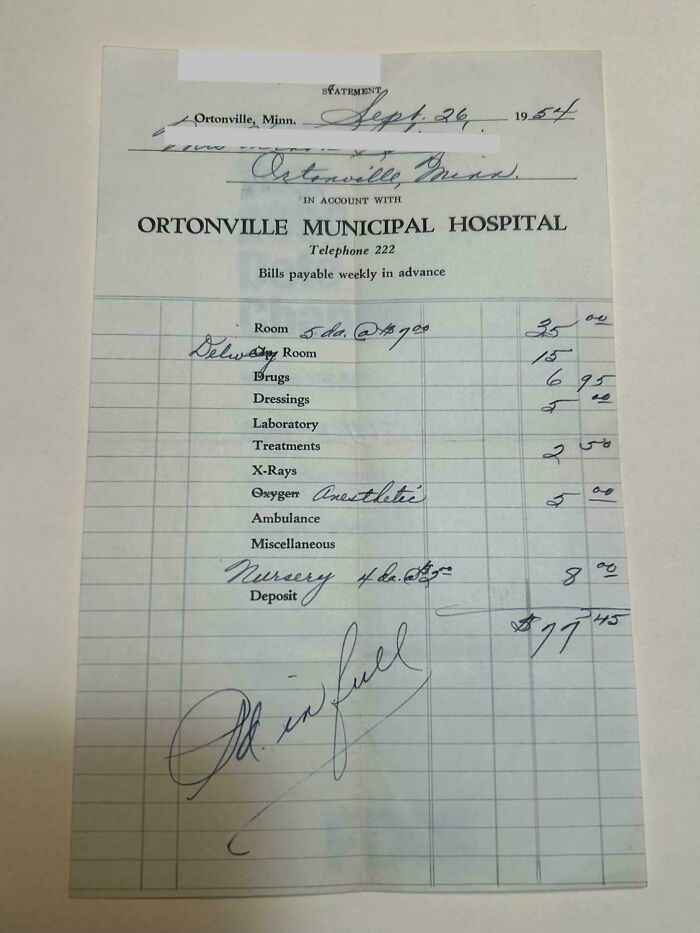 STATEMENT
Ortonville, Minn. Sept. 26, 1954
Ortonville, Minn.
IN ACCOUNT WITH
ORTONVILLE MUNICIPAL HOSPITAL
Telephone 222
Bills payable weekly in advance
Room 5 da. @ $7.00 35 00
Delivery Room 15
Drugs 6 95
Dressings 5 00
Laboratory
Treatments 2 50
X-Rays
Oxygen Anesthetic 5 00
Ambulance
Miscellaneous
Nursery 4 da. @ $2.00 8 00
Deposit
$77 45
Pd. in full